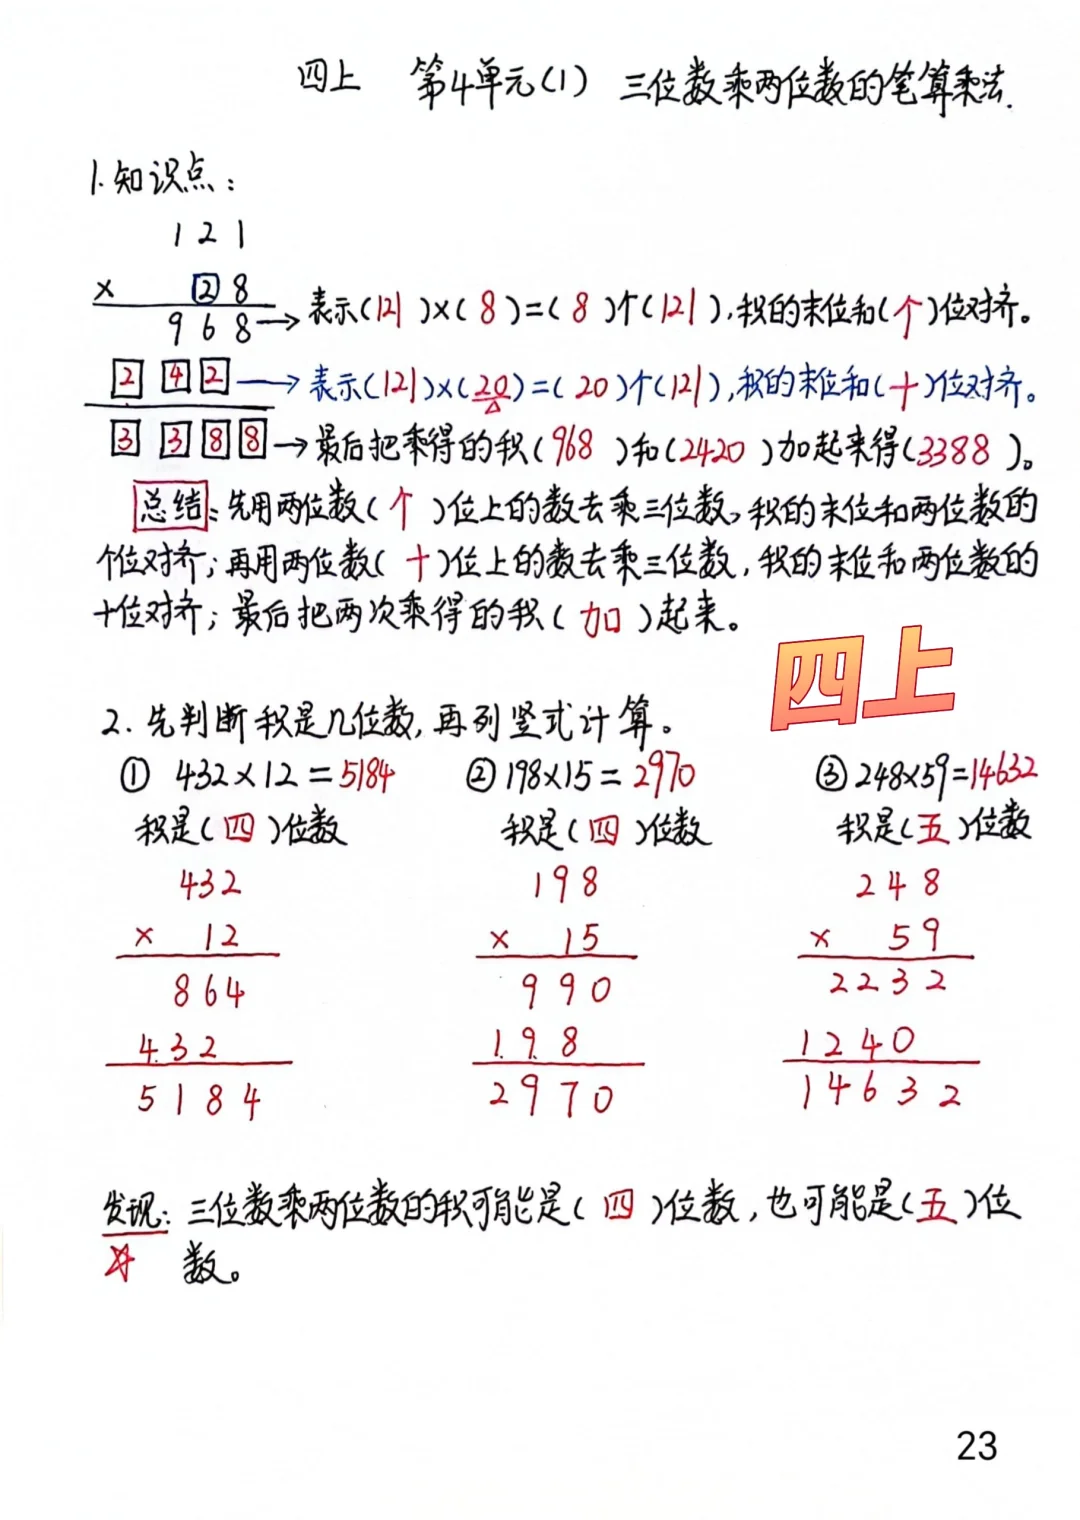 四上 第4单元(1) 三位数乘两位数的笔算乘法.
1.知识点:
121
× 28
968→表示(121)×(8)=(8)个(121),积的末位和(个)位对齐。
242→表示(121)×(20)=(20)个(121),积的末位和(十)位对齐。
3388→最后把乘得的积(968)和(2420)加起来得(3388)。
总结:先用两位数(个)位上的数去乘三位数,积的末位和两位数的
个位对齐;再用两位数(十)位上的数去乘三位数,积的末位和两位数的
十位对齐;最后把两次乘得的积(加)起来。
四上
2.先判断积是几位数,再列竖式计算。
① 432×12=5184 ②198×15=2970 ③248×59=14632
积是(四)位数 积是(四)位数 积是(五)位数
432 198 248
× 12 × 15 × 59
864 990 2232
432 198 1240
5184 2970 14632
发现:三位数乘两位数的积可能是(四)位数,也可能是(五)位
数。
23